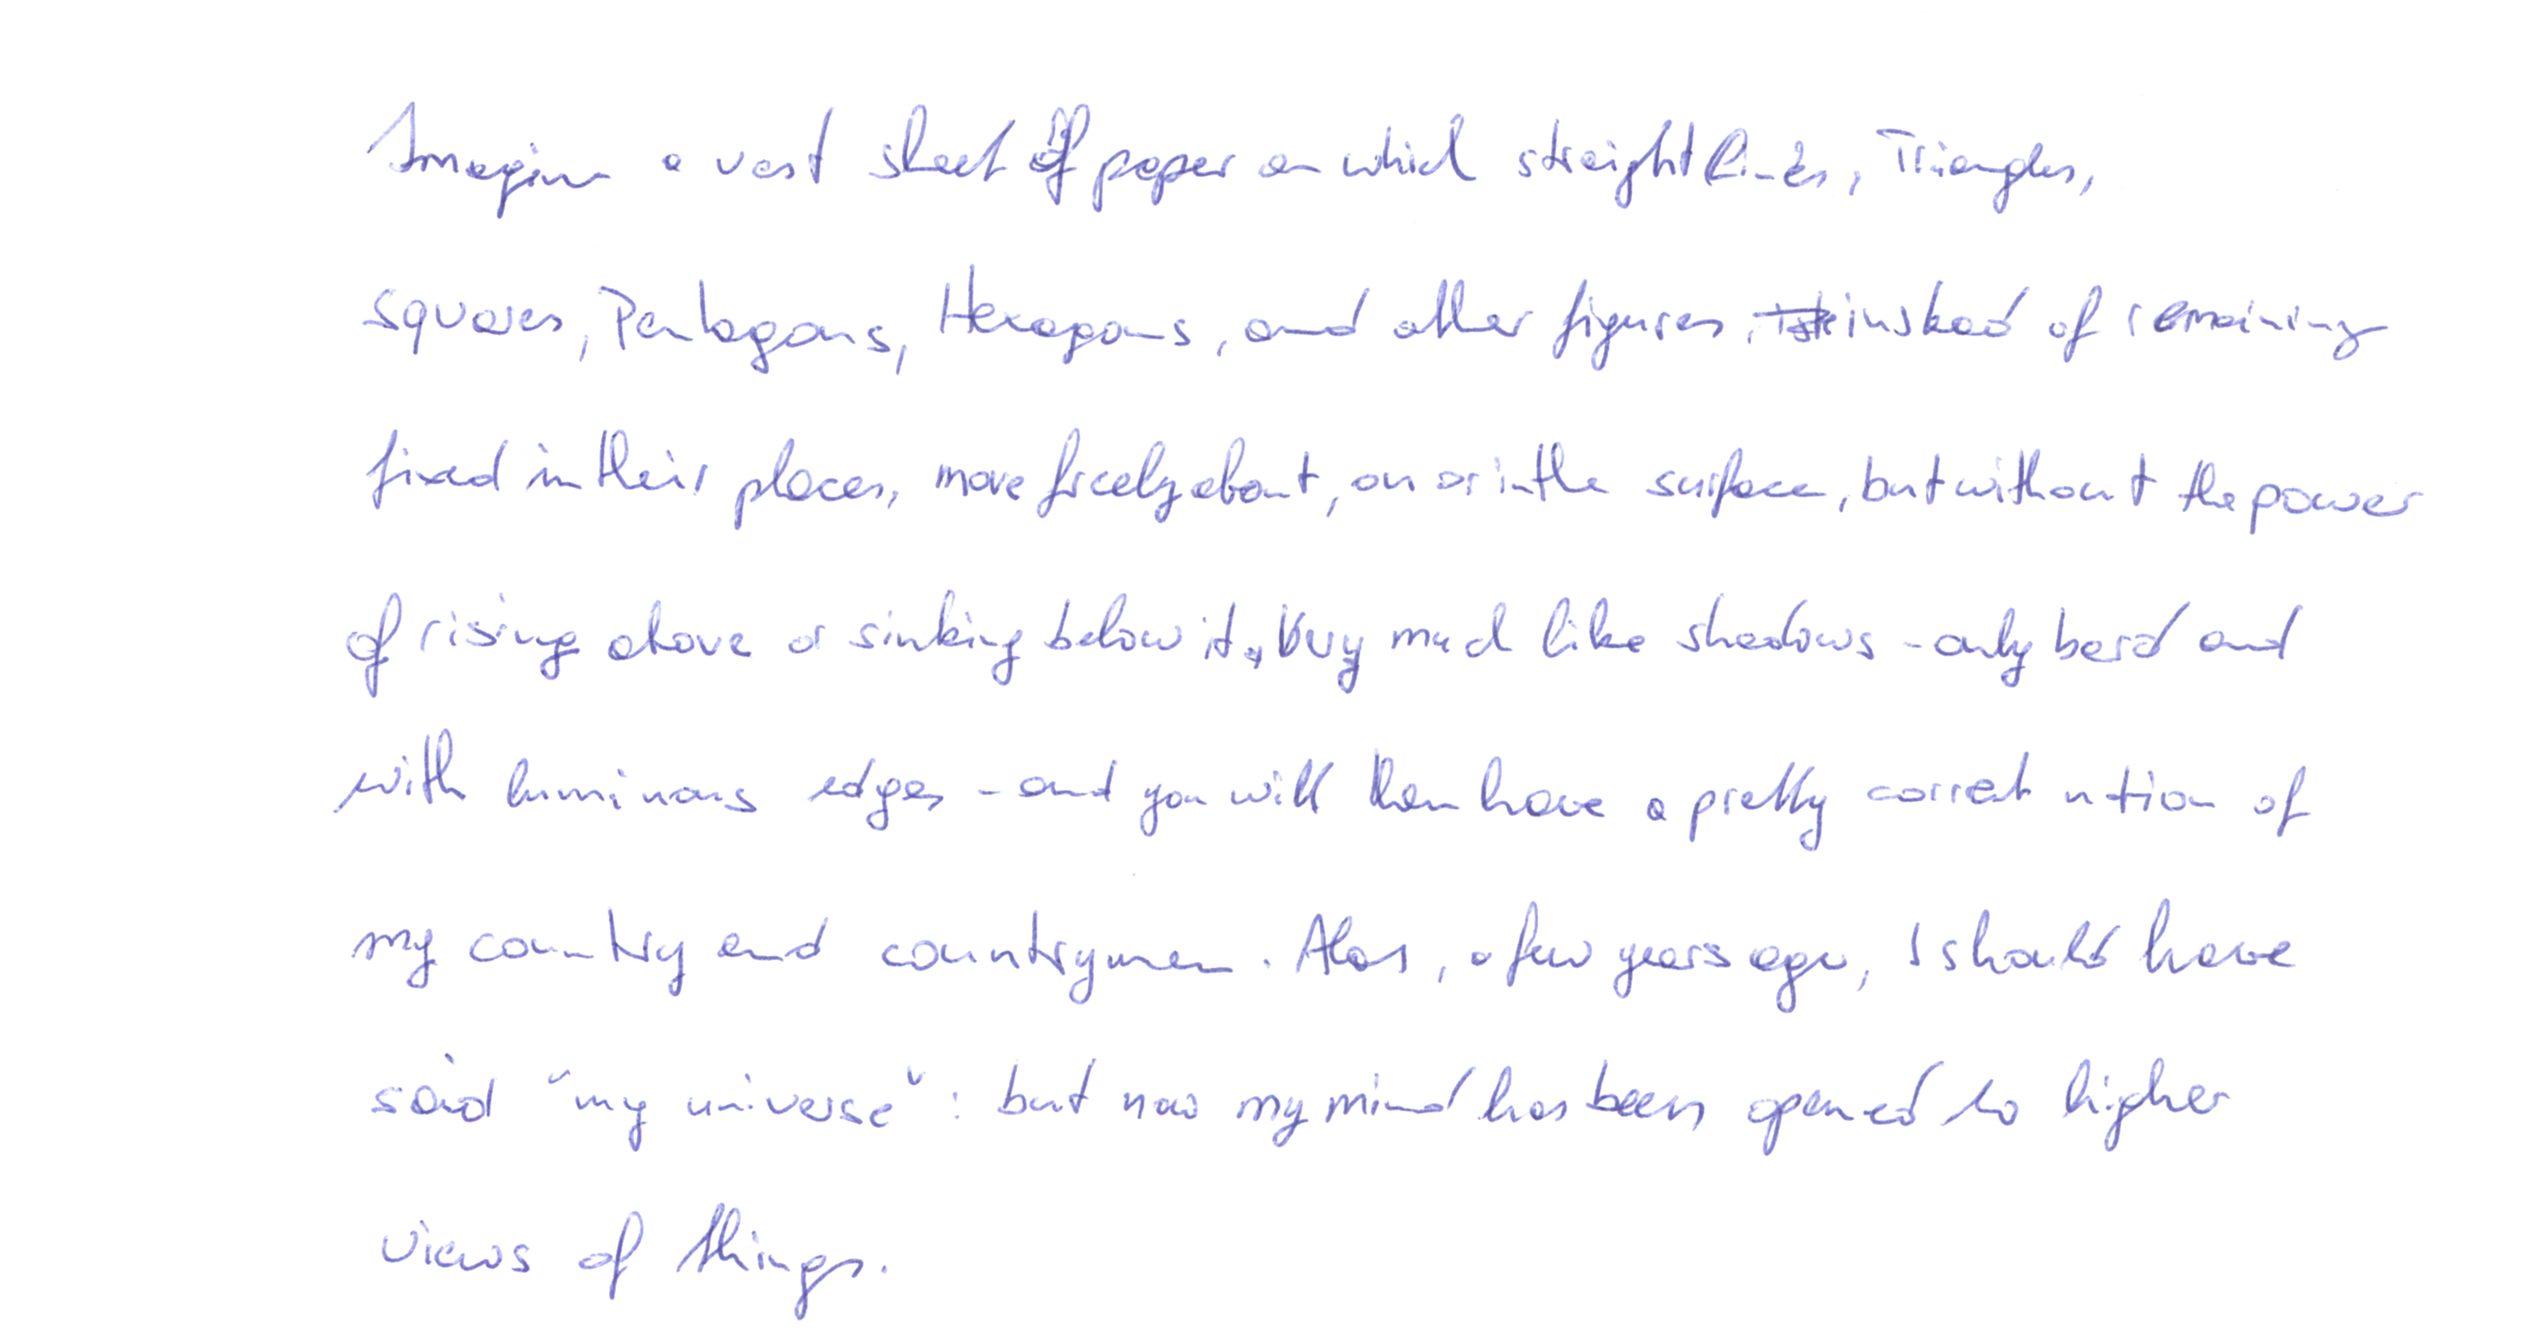 Imagine a vast sheet of paper on which straight lines, Triangles,
squares, Pentagons, Hexagons, and other figures, instead of remaining
fixed in their places, move freely about, on or in the surface, but without the power
of rising above or sinking below it, very much like shadows - only hard and
with luminous edges - and you will then have a pretty correct ntion of
my country and countrymen. Alas, a few years ago, I should have
said "my universe": but now my mind has been opened to higher
views of things.